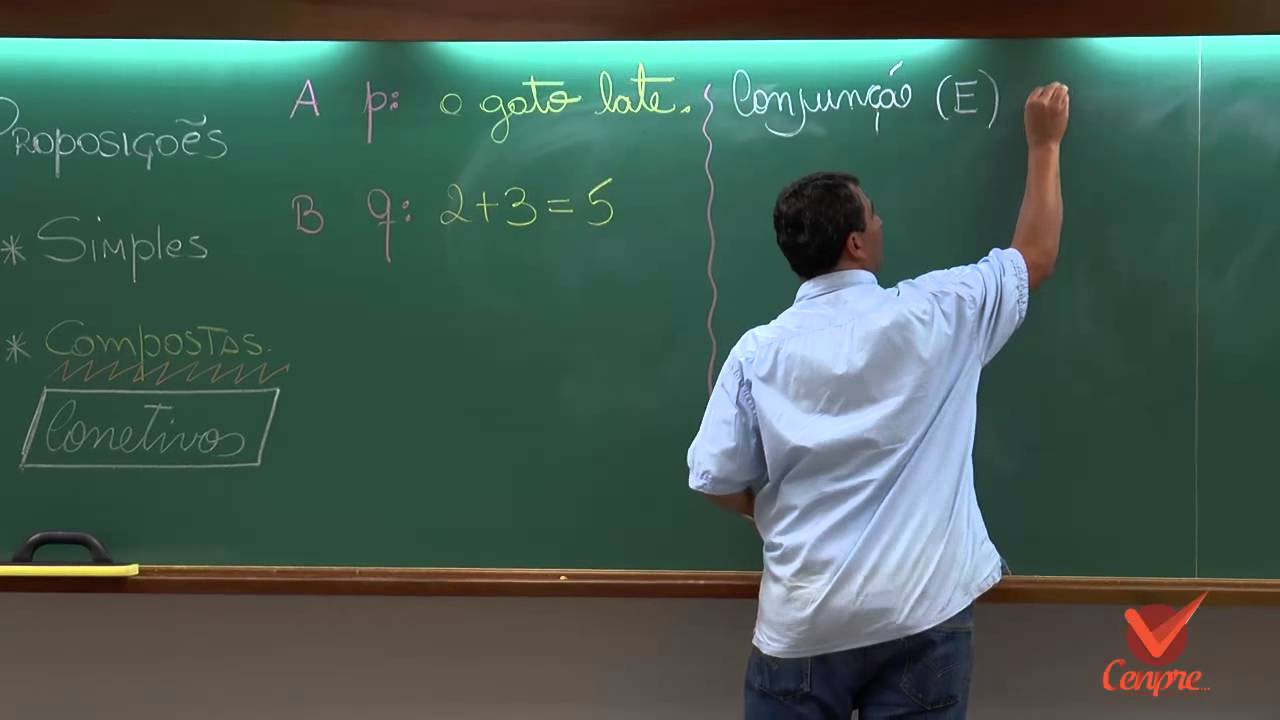 PROPOSIÇÕES
* Simples
* COMPOSTAS.
Conetivos
A p: o gato late.
B q: 2+3=5
Conjunção (E)
Cenpre...